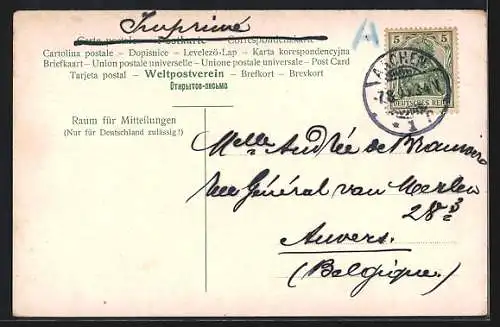 Imprimé
Carte postale — Postkarte — Correspondenzkarte
Cartolina postale – Dopisnice – Levelező-Lap – Karta korespondencyjna
Briefkaart – Union postale universelle – Unione postale universale – Post Card
Tarjeta postal – Weltpostverein – Brefkort – Brevkort
Открытое письмо
A
5 5
AACHEN
DEUTSCHES REICH
1
Raum für Mitteilungen
(Nur für Deutschland zulässig!)
Melle Andrée de
Rue Général van Merlen
28
Anvers.
(Belgique.)